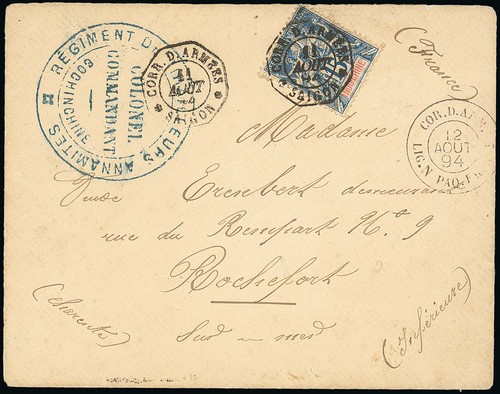 RÉGIMENT DE
TIRAILLEURS ANNAMITES
COCHINCHINE
COLONEL
COMMANDANT
CORR. D. ARMÉES
11
AOUT
94
SAIGON
CORR. D. ARMÉES
11
AOUT
94
SAIGON
INDO-CHINE
(France)
COR. D. ARM.
12
AOUT
94
LIG. N PAQ. FR
Madame
Veuve Erembert demeurant
rue du Rempart No 9
Rochefort
(Charente
Inférieure)
Sud